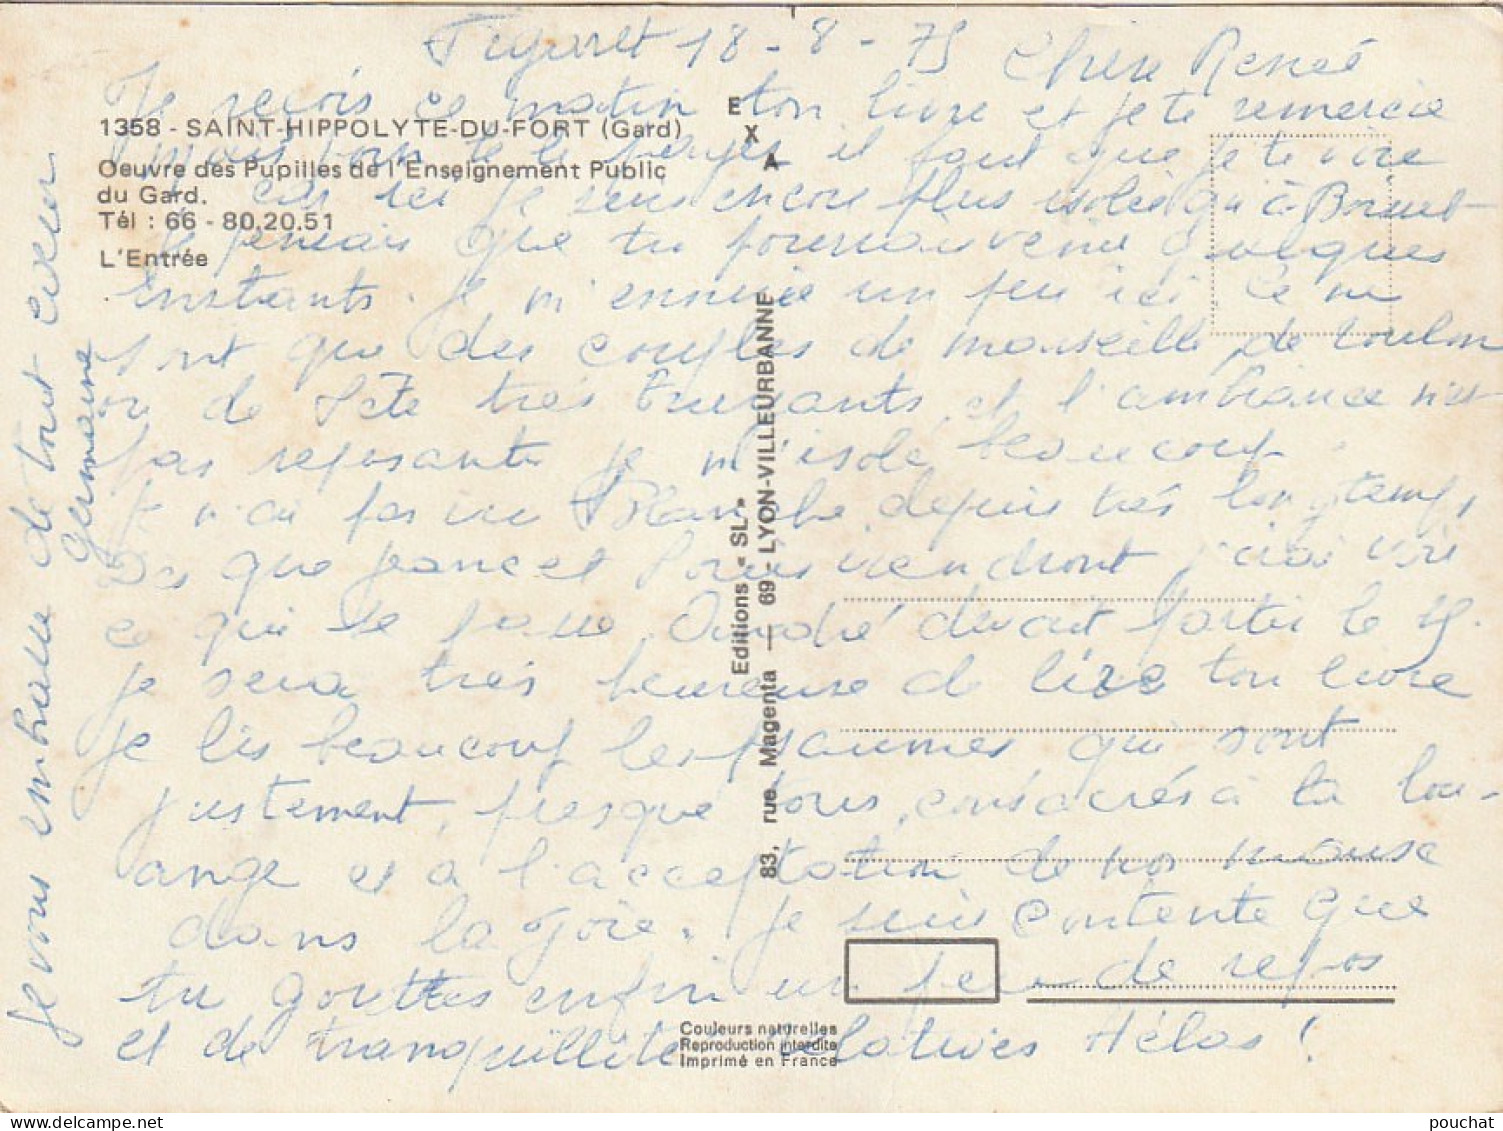 18-8-75 Chère Renée
Je reçois ce matin ton livre et je te remercie
mais tu le il faut que je te
car ici je suis encore plus isolée qu'à
Je pensais que tu pourrais venir quelques
instants. Je m'ennuie un peu ici. Ce ne
sont que des couples de Marseille, de Toulon
ou de Sète très bruyants, et l'ambiance n'est
pas reposante je m'isole beaucoup
Je n'ai pas vu Blanche depuis très longtemps
Dès que et Louis viendront j'irai voir
ce qui se passe. André devait partir le 15.
je sera très heureuse de lire ton livre
je lis beaucoup les psaumes qui sont
justement, presque tous, consacrés à la lou-
ange et à l'acceptation de nos
dans la joie. Je suis contente que
tu gouttes enfin un peu de repos
et de tranquillité relatives Hélas !
Je vous embrasse de tout coeur
Germaine
1358 - SAINT-HIPPOLYTE-DU-FORT (Gard)
Oeuvre des Pupilles de l'Enseignement Public
du Gard.
Tél : 66 - 80.20.51
L'Entrée
EXA
Editions « SL »
83, rue Magenta — 69 - LYON-VILLEURBANNE
Couleurs naturelles
Reproduction interdite
Imprimé en France
pouchat